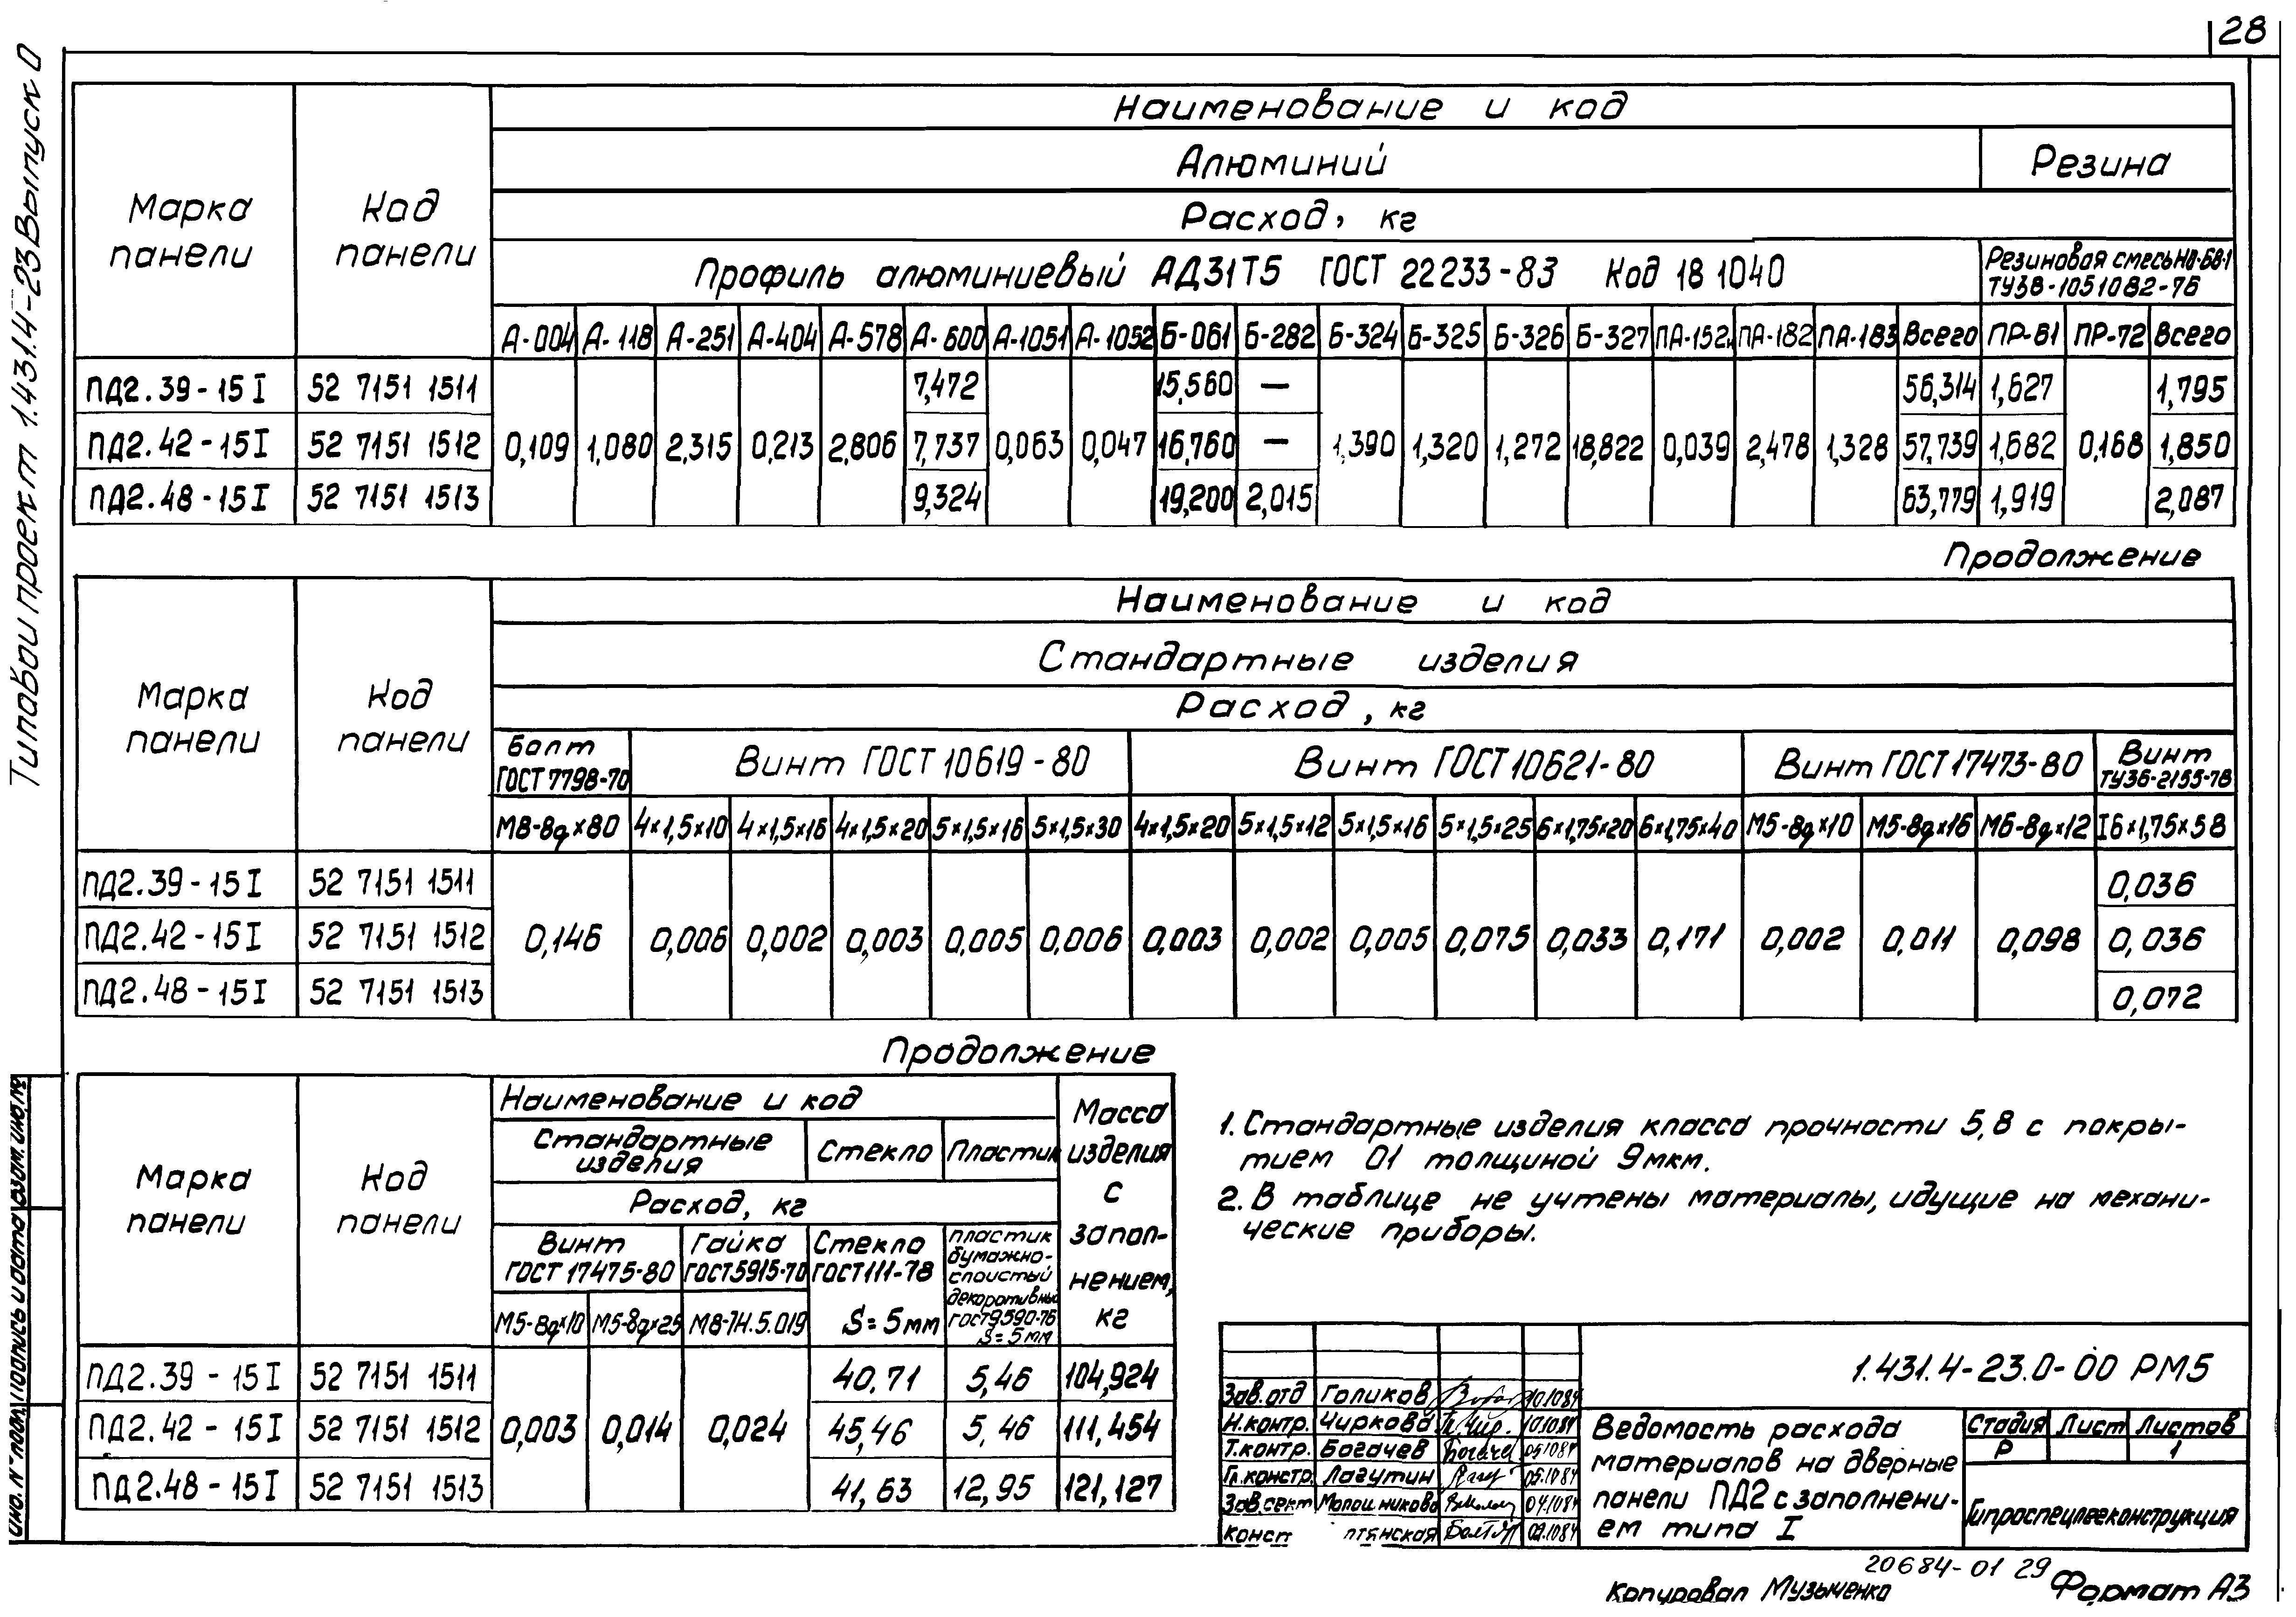 28
Типовой проект 1.431.4-23 Выпуск 0
Марка панели
Код панели
Наименование и код
Алюминий
Резина
Расход, кг
Профиль алюминиевый АД31Т5 ГОСТ 22233-83 Код 18 1040
Резиновая смесь НО-68-1
ТУ38-1051082-76
А-004 А-118 А-251 А-404 А-578 А-600 А-1051 А-1052 Б-061 Б-282 Б-324 Б-325 Б-326 Б-327 ПА-152 ПА-182 ПА-183 Всего ПР-61 ПР-72 Всего
ПД2.39-15 I 52 7151 1511 7,472 15,560 — 56,314 1,627 1,795
ПД2.42-15 I 52 7151 1512 0,109 1,080 2,315 0,213 2,806 7,737 0,063 0,047 16,760 — 1,390 1,320 1,272 18,822 0,039 2,478 1,328 57,739 1,682 0,168 1,850
ПД2.48-15 I 52 7151 1513 9,324 19,200 2,015 63,779 1,919 2,087
Продолжение
Марка панели
Код панели
Наименование и код
Стандартные изделия
Расход, кг
Болт ГОСТ 7798-70
Винт ГОСТ 10619-80
Винт ГОСТ 10621-80
Винт ГОСТ 17473-80
Винт ТУ36-2155-78
М8-8g×80 4×1,5×10 4×1,5×16 4×1,5×20 5×1,5×16 5×1,5×30 4×1,5×20 5×1,5×12 5×1,5×16 5×1,5×25 6×1,75×20 6×1,75×40 М5-8g×10 М5-8g×16 М6-8g×12 I6×1,75×58
ПД2.39-15 I 52 7151 1511 0,036
ПД2.42-15 I 52 7151 1512 0,146 0,006 0,002 0,003 0,005 0,006 0,003 0,002 0,005 0,075 0,033 0,171 0,002 0,011 0,098 0,036
ПД2.48-15 I 52 7151 1513 0,072
Продолжение
Марка панели
Код панели
Наименование и код
Стандартные изделия
Стекло
Пластик
Масса изделия с заполнением, кг
Расход, кг
Винт ГОСТ 17475-80
Гайка ГОСТ 5915-70
Стекло ГОСТ 111-78
S=5мм
пластик бумажно-слоистый декоративный ГОСТ 9590-76 S=5мм
М5-8g×10 М5-8g×25 М8-7Н.5.019
ПД2.39-15 I 52 7151 1511 40,71 5,46 104,924
ПД2.42-15 I 52 7151 1512 0,003 0,014 0,024 45,46 5,46 111,454
ПД2.48-15 I 52 7151 1513 41,63 12,95 121,127
1. Стандартные изделия класса прочности 5,8 с покры-
тием 01 толщиной 9мкм.
2. В таблице не учтены материалы, идущие на механи-
ческие приборы.
1.431.4-23.0-00 РМ5
Зав.отд Голиков 10.1084
Н.контр. Чиркова 10.1084
Т.контр. Богачев 05.1084
Гл.констр. Лагутин 05.1084
Зав.сект 04.1084
Конст 02.1084
Ведомость расхода
материалов на дверные
панели ПД2 с заполнени-
ем типа I
Стадия Лист Листов
Р 1
Гипроспецлегконструкция
20684-01 29
Копировал Музыченко
Формат А3
Инв. № подл. Подпись и дата Взам. инв. №